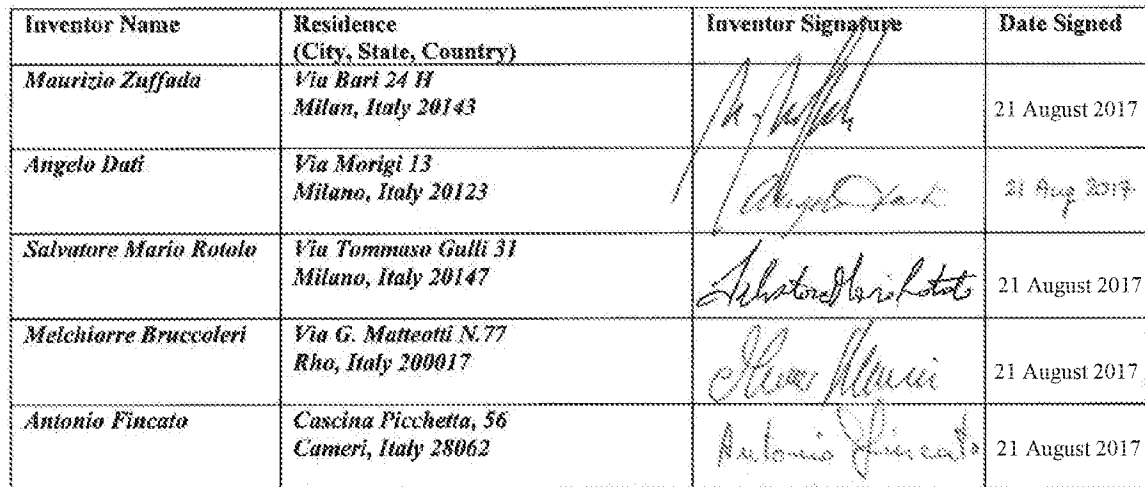 Inventor Name Residence Inventor Signature Date Signed
(City, State, Country)
Maurizio Zuffada Via Bari 24 H
Milan, Italy 20143 21 August 2017
Angelo Dati Via Morigi 13
Milano, Italy 20123 21 Aug 2017
Salvatore Mario Rotolo Via Tommaso Gulli 31
Milano, Italy 20147 Salvatore Mario Rotolo 21 August 2017
Melchiorre Bruccoleri Via G. Matteotti N.77
Rho, Italy 200017 21 August 2017
Antonio Fincato Cascina Picchetta, 56
Cameri, Italy 28062 Antonio Fincato 21 August 2017